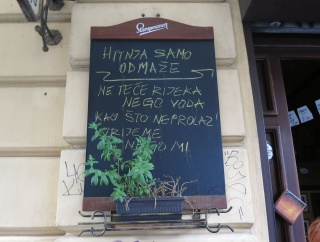 Staropramen
HITNJA SAMO
ODMAŽE
NE TEČE RIJEKA
NEGO VODA
KAO ŠTO NE PROLAZI
VRIJEME
NEGO MI